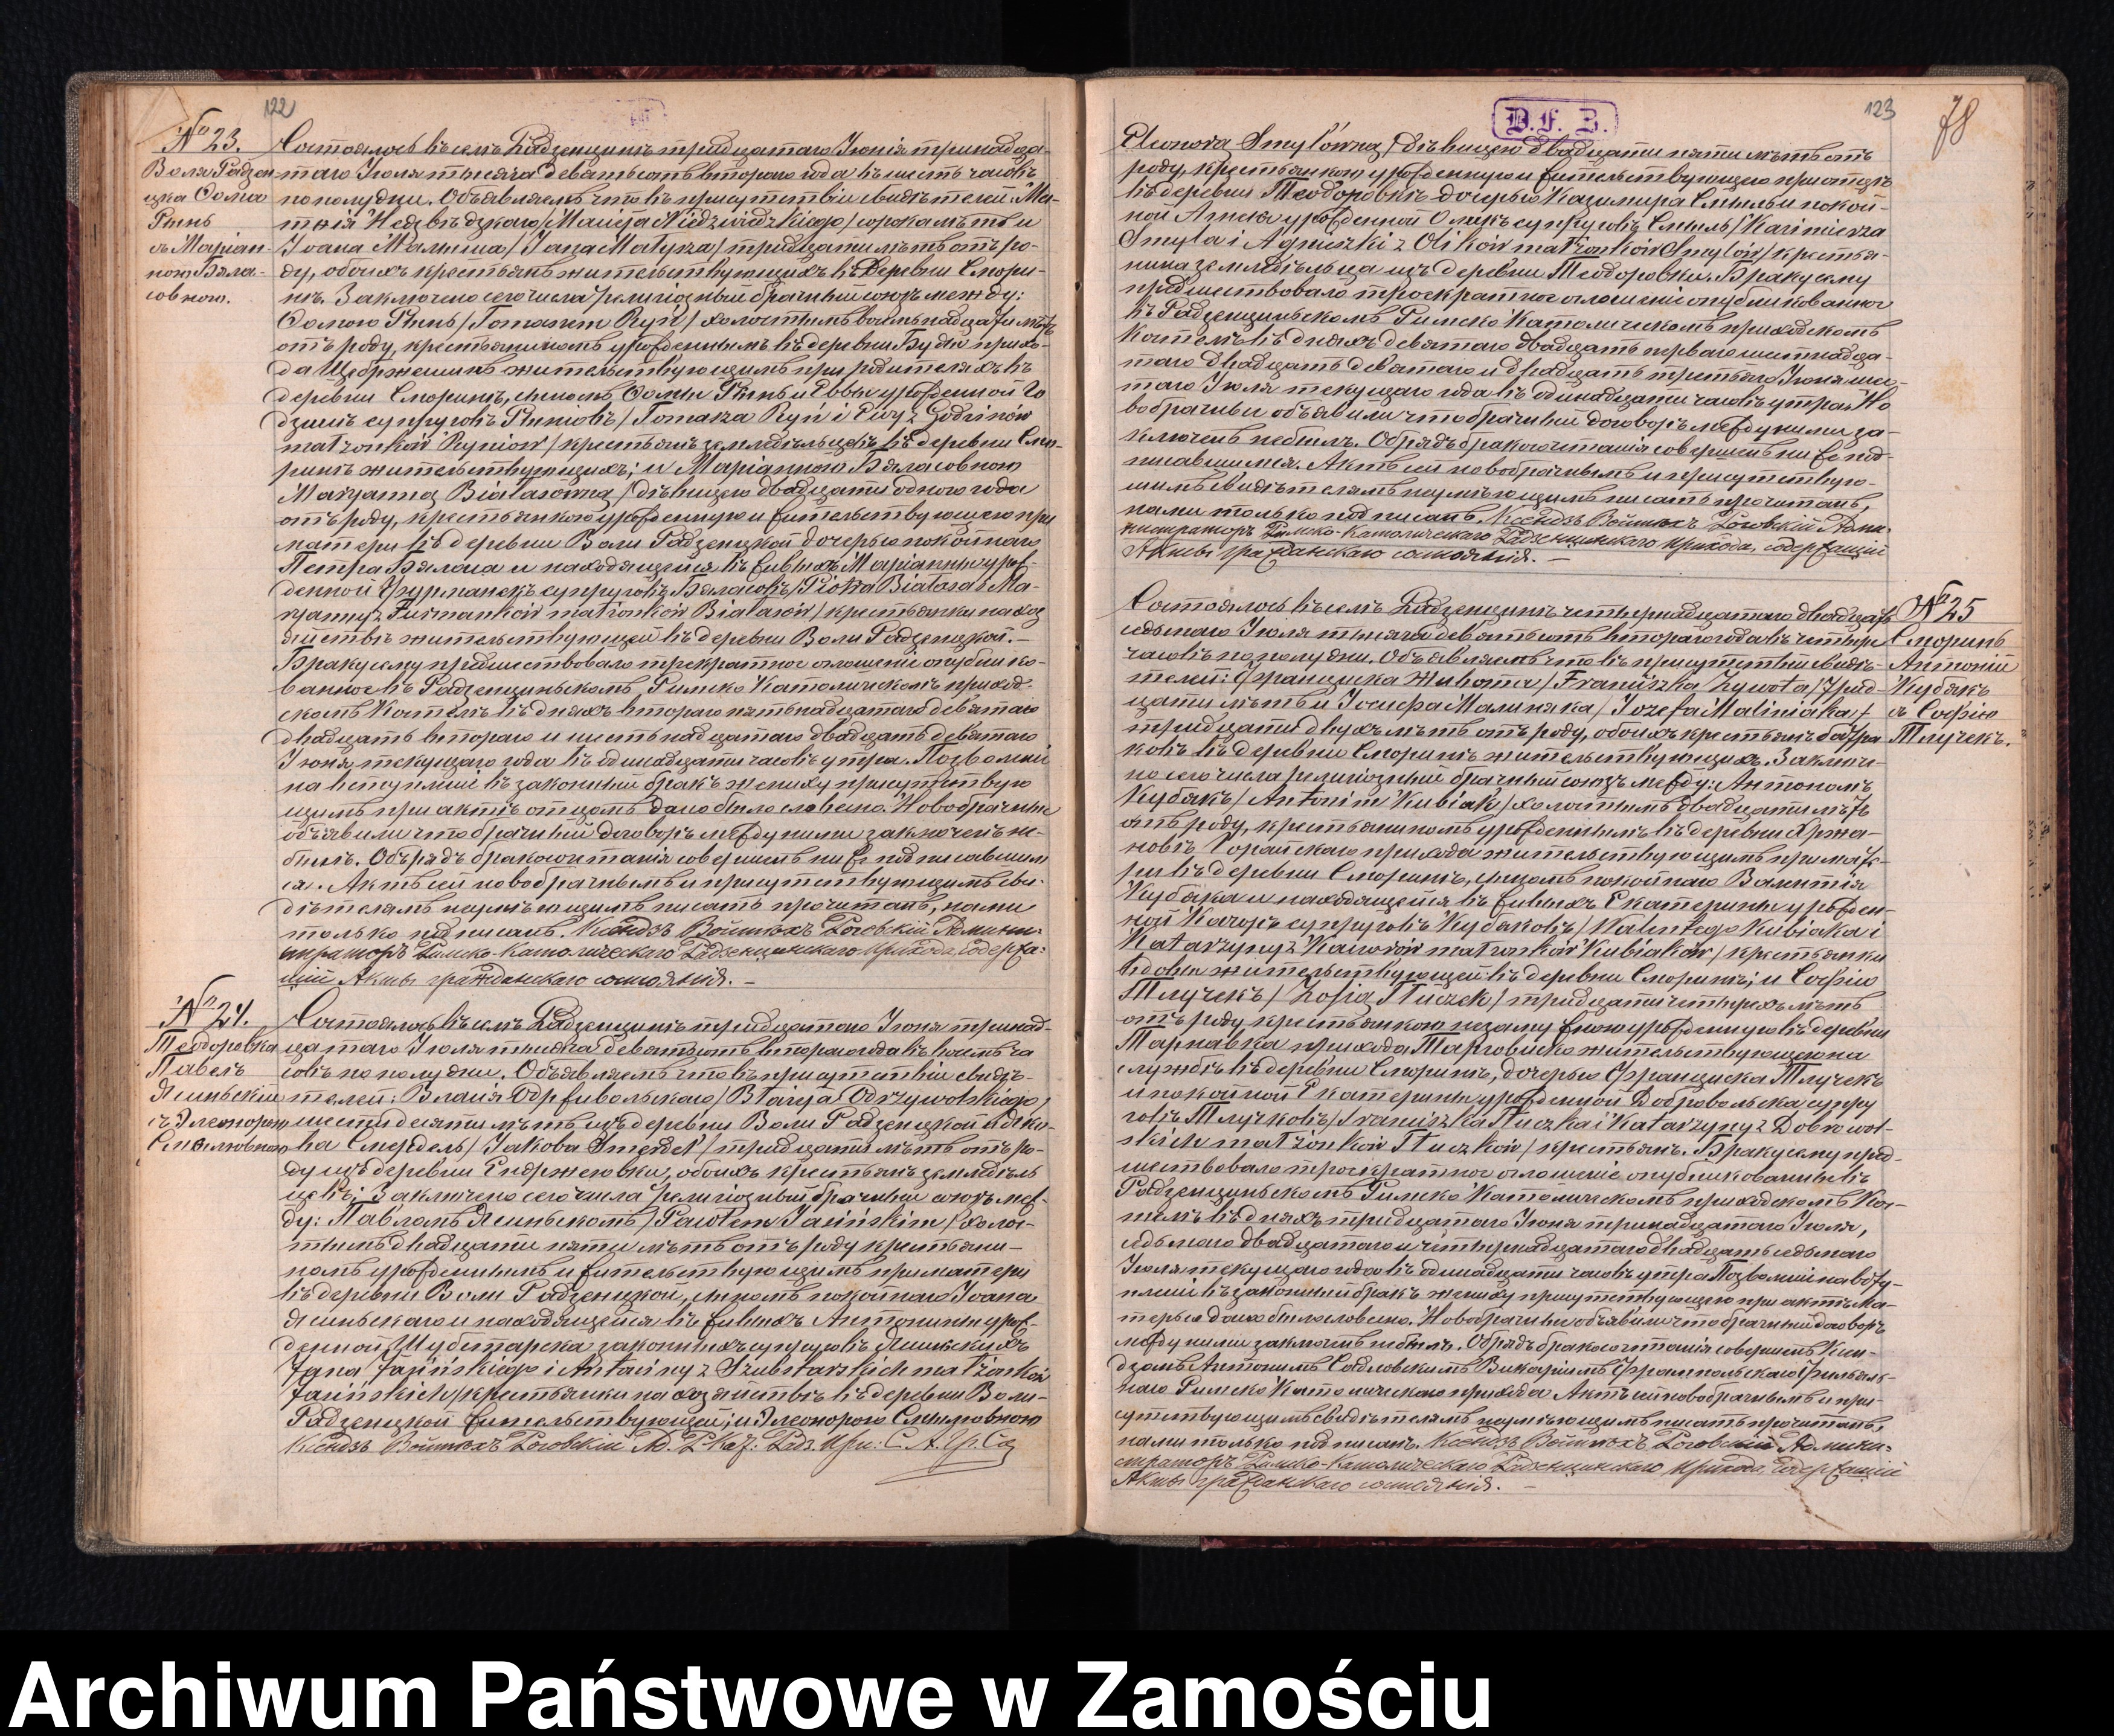 122
№ 23.
Воля Радзен-
цка Ѳома
Рынь
съ Маріан-
ною Бяла-
совною.
Состоялось въ селѣ Радзенцинѣ тридцатаго Іюня тринадца-
таго Іюля тысяча девятьсотъ втораго года въ шесть часовъ
пополудни. Объявляемъ что въ присутствіи свидѣтелей: Ма-
тѣя Недзвѣдзкаго /Macieja Niedzwiedzkiego/ сорока лѣтъ и
Іоана Малыша /Jana Małysza/ тридцати лѣтъ отъ ро-
ду, обоихъ крестьянъ жительствующихъ въ деревни Смори-
нѣ. Заключено сего числа религіозный брачный союзъ между:
Ѳомою Рынь /Tomaszem Ryń/ холостымъ восьмнадцати лѣтъ
отъ роду, крестьяниномъ урожденнымъ въ деревни Будки прихо-
да Щебржешинъ жительствующимъ при родителяхъ въ
деревни Сморинѣ, сыномъ Ѳомы Рынь и Еввы урожденной Го-
дзинъ супруговъ Рыніовъ /Tomasza Ryń i Ewy z Godzinów
małżonków Ryniów/ крестьянъ земледѣльцевъ въ деревни Смо-
ринѣ жительствующихъ; и Маріанною Бяласовною
Maryanną Białasówną /дѣвицею двадцати одного года
отъ роду, крестьянкою урожденную и жительствующею при
матери въ деревни Воли Радзенцкой дочерью покойнаго
Петра Бяласа и находящейся въ живыхъ Маріанны урож-
денной Фурманекъ супруговъ Бяласовъ /Piotra Białasa i Ma-
ryanny z Furmanków małżonków Białasów/ крестьянки на хоз-
яйствѣ жительствующей въ деревни Воли Радзенцкой.—
Браку сему предшествовало трекратное оглашеніе опублико-
ванное въ Радзенцинскомъ Римско Католическомъ приход-
скомъ Костелѣ въ дняхъ втораго пятьнадцатаго девятаго
двадцать втораго и шестьнадцатаго двадцать девятаго
Іюня текущаго года въ одинадцати часовъ утра. Позволеніе
на вступленіе въ законный бракъ жениху присутствую-
щимъ при актѣ отцомъ дано было словесно. Новобрачные
объявили что брачный договоръ между ними заключенъ не-
былъ. Обрядъ бракосочетанія совершенъ ниже подписавшим-
ся. Актъ сей новобрачнымъ и присутствующимъ сви-
дѣтелямъ неумѣющимъ писать прочитанъ, нами
только подписанъ. Ксендзъ Войтѣхъ Роговскій Админи-
страторъ Римско-Католическаго Радзенцинскаго Прихода, содержа-
щій Акты гражданскаго состоянія.—
№ 24.
Теодоровка
Павелъ
Ясиньскій
съ Элеонорою
Смылювною
Состоялось въ селѣ Радзенцинѣ тридцатаго Іюня тринад-
цатаго Іюля тысяча девятьсотъ втораго года въ восемь ча-
совъ пополудни. Объявляемъ что въ присутствіи свидѣ-
телей: Влазія Одрживольскаго /Błażeja Odrzywolskiego/
шестидесяти лѣтъ изъ деревни Воли Радзенцкой и Яко-
ва Смердель /Jakóba Smerdel/ тридцати лѣтъ отъ ро-
ду изъ деревни Ендржеювки, обоихъ крестьянъ земледѣль-
цевъ; Заключено сего числа религіозный брачный союзъ меж-
ду: Павломъ Ясиньскомъ /Pawłem Jasińskim/ холос-
тымъ двадцати пяти лѣтъ отъ роду крестьяни-
номъ урожденнымъ и жительствующимъ при матери
въ деревни Воли Радзенцкой, сыномъ покойнаго Іоана
Ясиньскаго и находящейся въ живыхъ Антонины урож-
денной Шубстарска законныхъ супруговъ Ясинскихъ
Jana Jasińskiego i Antoniny z Szubstarskich małżonków
Jasińskich/ крестьянки на хозяйствѣ въ деревни Воли-
Радзенцкой жительствующей; и Элеонорою Смылювною
Ксендзъ Войтѣхъ Роговскій Ад. Р. Кат: Радз. При: С. А. Гр. Сос
D. F. B.
123
78
Eleonorą Smylówną /дѣвицею двадцати пяти лѣтъ отъ
роду, крестьянкою урожденную и жительствующею при отцѣ
въ деревни Теодоровкѣ дочерью Казимира Смыль и покой-
ной Агнѣшки урожденной Оликъ супруговъ Смыль /Kazimierza
Smyla i Agnieszki z Olików małżonków Smylów/ крестья-
нина земледѣльца изъ деревни Теодоровки. Браку сему
предшествовало троекратное оглашеніе опубликованное
въ Радзенцинскомъ Римско Католическомъ приходскомъ
Костелѣ въ дняхъ девятаго двадцать перваго шестнадца-
таго двадцать девятаго и двадцать третьяго Іюня шес-
таго Іюля текущаго года въ одинадцати часовъ утра. Но-
вобрачные объявили что брачный договоръ между ними за-
ключенъ небылъ. Обрядъ бракосочетанія совершенъ ниже под-
писавшимся. Актъ сей новобрачнымъ и присутствую-
щимъ свидѣтелямъ неумѣющимъ писать прочитанъ,
нами только подписанъ. Ксендзъ Войтѣхъ Роговскій Адми-
нистраторъ Римско-Католическаго Радзенцинскаго Прихода, содержащій
Акты гражданскаго состоянія.—
№ 25
Сморинь
Антоній
Кубякъ
съ Софією
Тлучекъ.
Состоялось въ селѣ Радзенцинѣ четырнадцатаго двадцать
седьмаго Іюля тысяча девятьсотъ втораго года въ четыре
часовъ пополудни. Объявляемъ что въ присутствіи свидѣ-
телей: Франциска Живота /Franciszka Żywota/ трид-
цати лѣтъ и Іосифа Малиняка /Józefa Maliniaka/
тридцати двухъ лѣтъ отъ роду, обоихъ крестьянъ батра-
ковъ въ деревни Сморинѣ жительствующихъ. Заключе-
но сего числа религіозный брачный союзъ между: Антономъ
Кубякъ /Antonim Kubiak/ холостымъ двадцати лѣтъ
отъ роду, крестьяниномъ урожденнымъ въ деревни Хржа-
новѣ Горайскаго прихода жительствующимъ при мате-
ри въ деревни Сморинѣ, сыномъ покойнаго Валентія
Кубяка и находящейся въ живыхъ Екатерины урожден-
ной Кавонъ супруговъ Кубяковъ /Walentego Kubiaka i
Katarzyny z Kawonów małżonków Kubiaków/ крестьянки
вдовы жительствующей въ деревни Сморинѣ; и Софію
Тлучекъ /Zofią Tłuczek/ тридцати четырехъ лѣтъ
отъ роду крестьянкою незамужною урожденную въ деревни
Тарнавка прихода Тарговиско жительствующею на
службѣ въ деревни Сморинѣ, дочерью Франциска Тлучекъ
и покойной Екатерины урожденной Добровольска супру-
говъ Тлучковъ /Franciszka Tłuczka i Katarzyny z Dobrowol-
skich małżonków Tłuczków/ крестьянъ. Браку сему пред-
шествовало троекратное оглашеніе опубликованное въ
Радзенцинскомъ Римско Католическомъ приходскомъ Кос-
телѣ въ дняхъ тридцатаго Іюня тринадцатаго Іюля,
седьмаго двадцатаго и четырнадцатаго двадцать седьмаго
Іюля текущаго года въ одинадцати часовъ утра. Позволеніе на всту-
пленіе въ законный бракъ жениху присутствующею при актѣ ма-
терью дано было словесно. Новобрачные объявили что брачный договоръ
между ними заключенъ небылъ. Обрядъ бракосочетанія совершенъ Ксен-
дзомъ Антонимъ Садловскимъ Викаріимъ Франпольскаго Филіаль-
наго Римско Католическаго прихода. Актъ сей новобрачнымъ и при-
сутствующимъ свидѣтелямъ неумѣющимъ писать прочитанъ,
нами только подписанъ. Ксендзъ Войтѣхъ Роговскій Админи-
страторъ Римско-Католическаго Радзенцинскаго Прихода, содержащій
Акты гражданскаго состоянія.—
Archiwum Państwowe w Zamościu